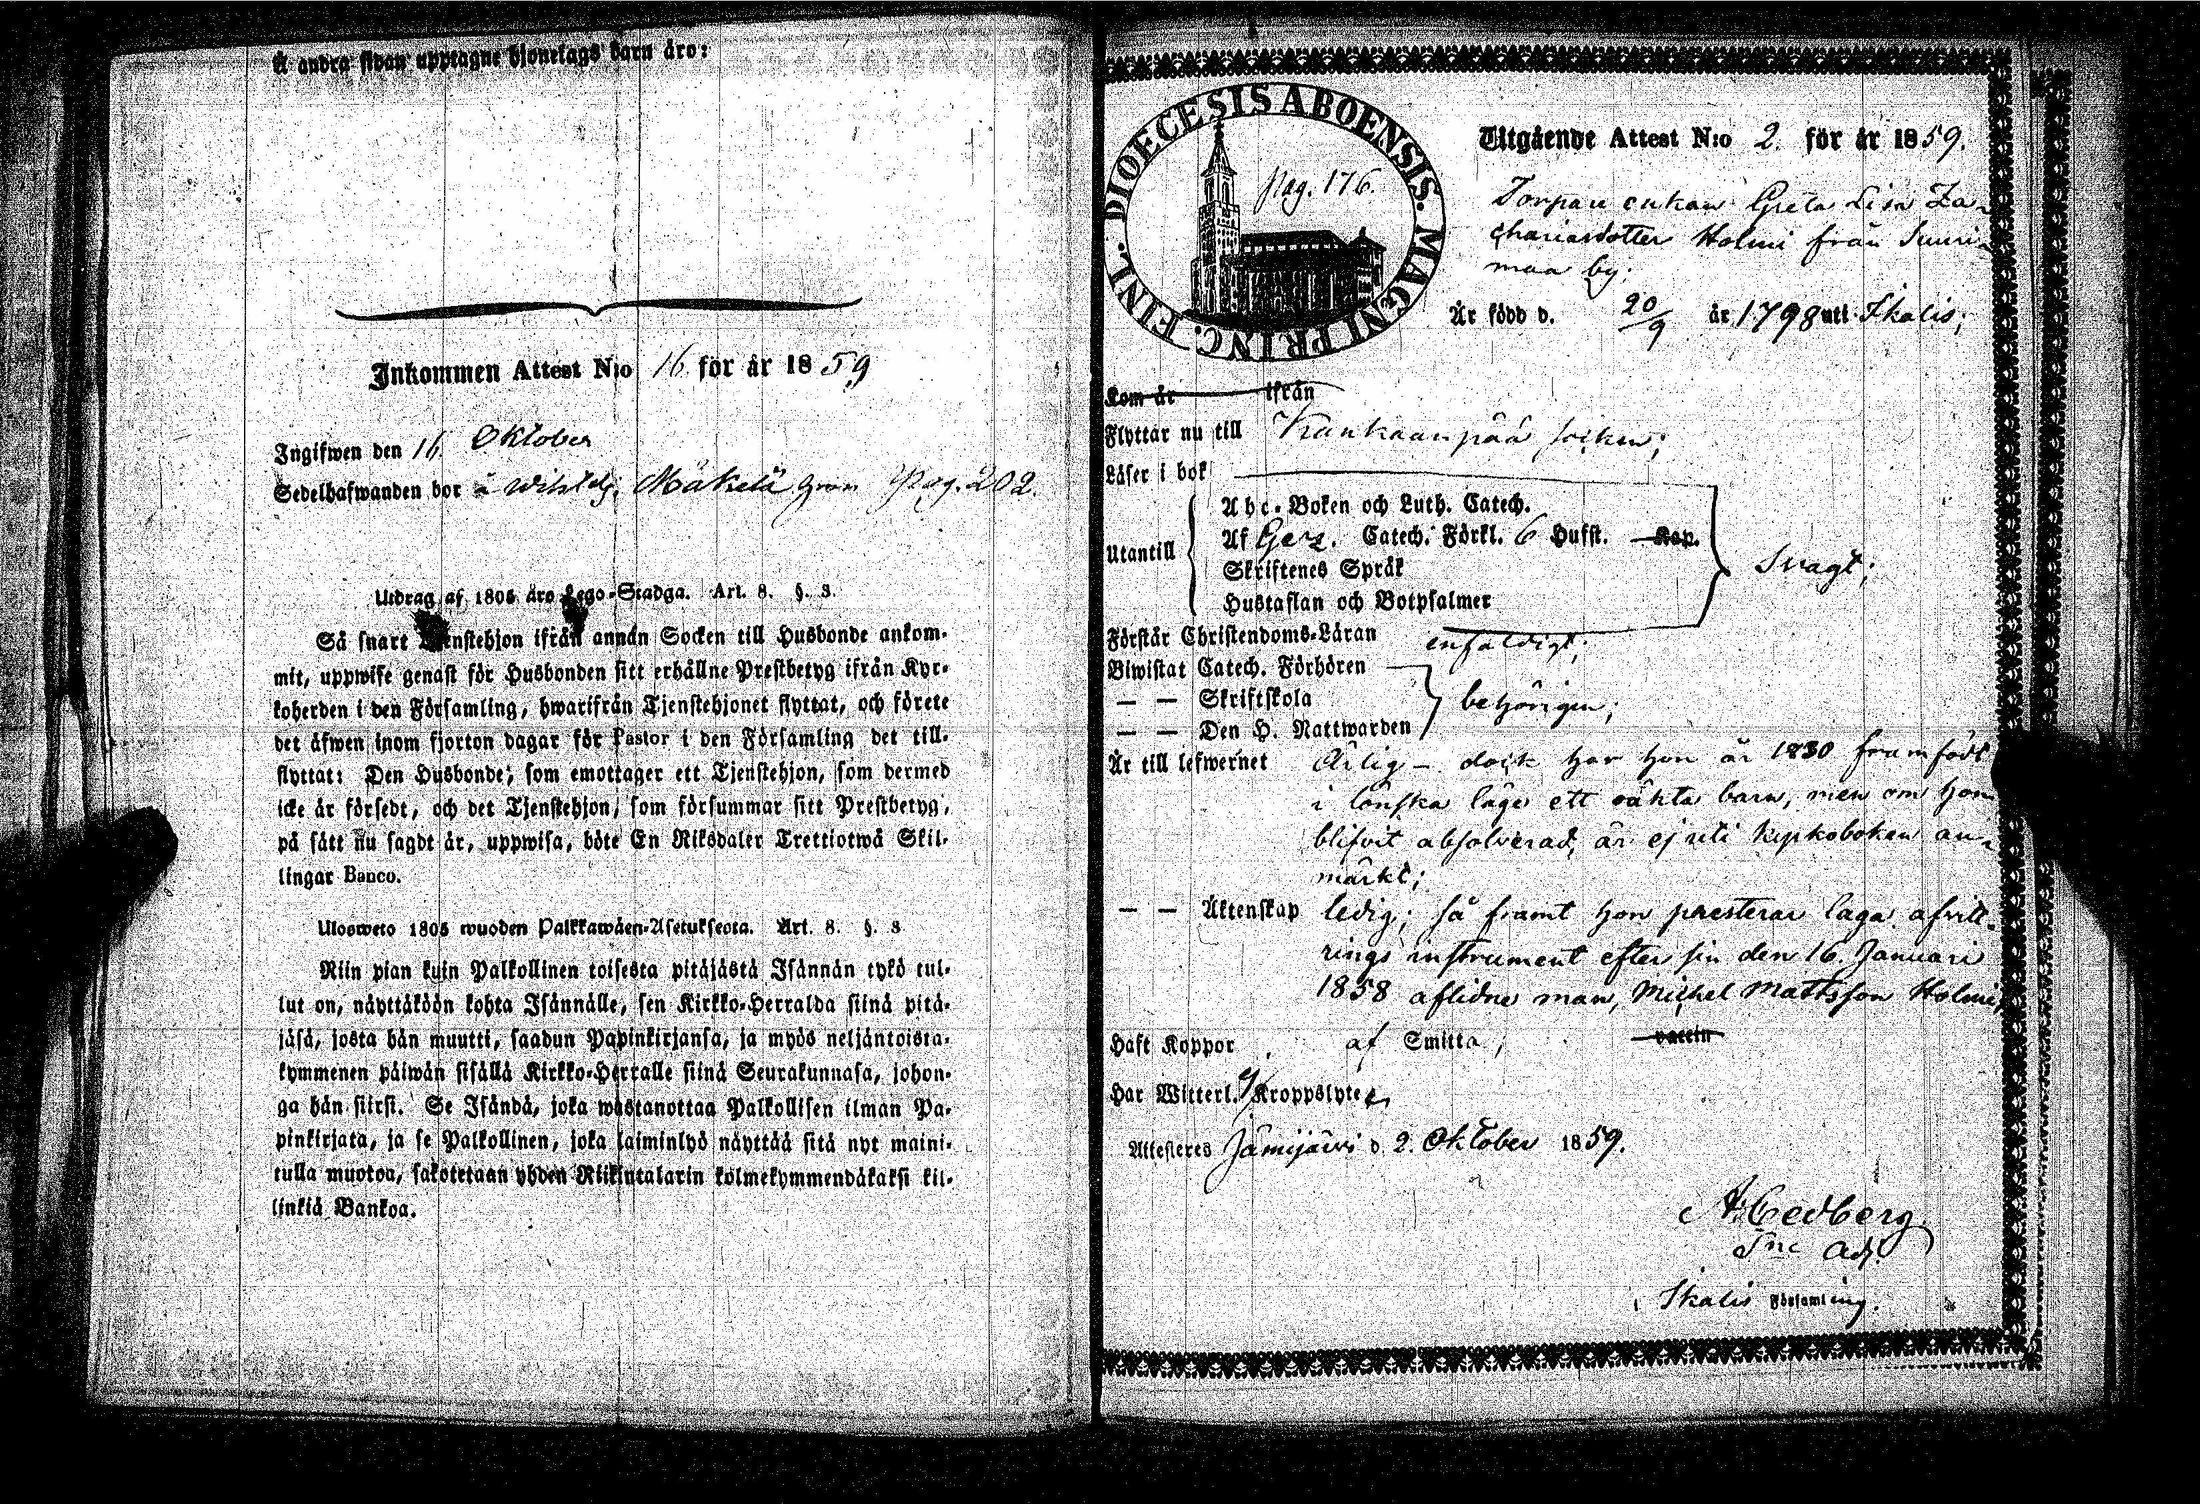 Å andra sidan upptagne hjonelags barn äro:
Inkommen Attest N:o 16. för år 1859
Ingifwen den 16. Oktober
Sedelhafwanden bor å Mäkelä Pag. 202.
Utdrag af 1805 års Lego-Stadga. Art. 8. §. 3.
Så snart Tjenstehjon ifrån annan Socken till Husbonde ankom-
mit, uppwise genast för Husbonden sitt erhållne Prestbetyg ifrån Kyr-
koherden i den Församling, hwarifrån Tjenstehjonet flyttat, och förete
det äfwen inom fjorton dagar för Pastor i den Församling det till-
flyttat: Den Husbonde, som emottager ett Tjenstehjon, som dermed
icke är försedt, och det Tjenstehjon, som försummar sitt Prestbetyg,
på sätt nu sagdt är, uppwisa, böte En Riksdaler Trettiotwå Skil-
lingar Banco.
Ulosweto 1805 wuoden Palkkawäen-Asetuksesta. Art. 8. §. 3
Niin pian kuin Palkollinen toisesta pitäjästä Isännän tykö tul-
lut on, näyttäköön kohta Isännälle, sen Kirkko-Herralda siinä pitä-
jäsä, josta hän muutti, saadun Papinkirjansa, ja myös neljäntoista-
kymmenen päiwän sisällä Kirkko-Herralle siinä Seurakunnasa, johon-
ga hän siirsi. Se Isändä, joka wastanottaa Palkollisen ilman Pa-
pinkirjata, ja se Palkollinen, joka laiminlyö näyttää sitä nyt maini-
tulla muotoa, sakotetaan yhden Riikintalarin kolmekymmendäkaksi kil-
linkiä Bankoa.
DIOECESIS ABOENSIS. MAGNI PRINC. FINL.
pag. 176.
Utgående Attest N:o 2. för år 1859.
Torpare enkan Greta Lisa Za-
chariasdotter Holmi från Suuri-
maa by.
Är född d. 20/9 år 1798 uti Ikalis;
Kom år ifrån
Flyttar nu till Kankaanpää socken;
Läser i bok
Utantill
Abc-Boken och Luth. Catech.
Af Gez. Catech. Förkl. 6 Hufst. Kap.
Skriftenes Språk
Hustaflan och Botpsalmer
Svagt;
Förstår Christendoms-Läran enfaldigt;
Biwistat Catech. Förhören
— — Skriftskola
— — Den H. Nattwarden
behörigen;
Är till lefwernet Ärlig – dock har hon år 1830 framfödt
i lönska läge ett oäkta barn, men om hon
blifvit absolverad, är ej uti kyrkoboken an-
märkt;
— — Äktenskap ledig; så framt hon presterar laga afvitt-
rings instrument efter sin den 16. Januari
1858 aflidne man, Michel Mattsson Holmi;
Haft Koppor af Smitta, vaccin
Har Witterl. Kroppslyte
Attesteras Jämijärvi d. 2. Oktober 1859.
A. Cedberg
Ikalis Församling.